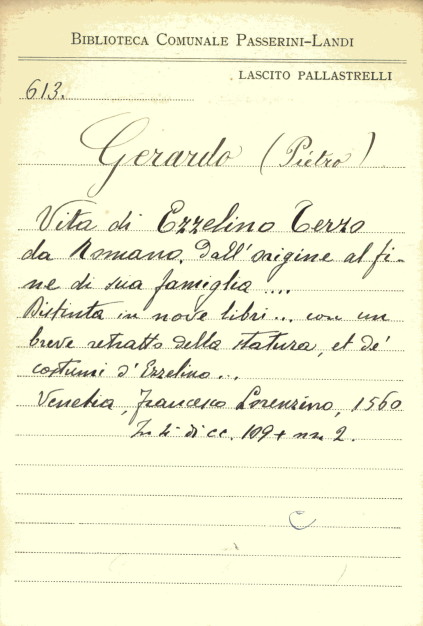 BIBLIOTECA COMUNALE PASSERINI-LANDI
LASCITO PALLASTRELLI
613.
Gerardo (Pietro)
Vita di Ezzelino Terzo
da Romano. Dall'origine al fi-
ne di sua famiglia ....
Distinta in nove libri... con un
breve retratto della statura, et de'
costumi d'Ezzelino...
Venetia, Francesco Lorenzino, 1560
In 4° di cc. 109 + nn 2.